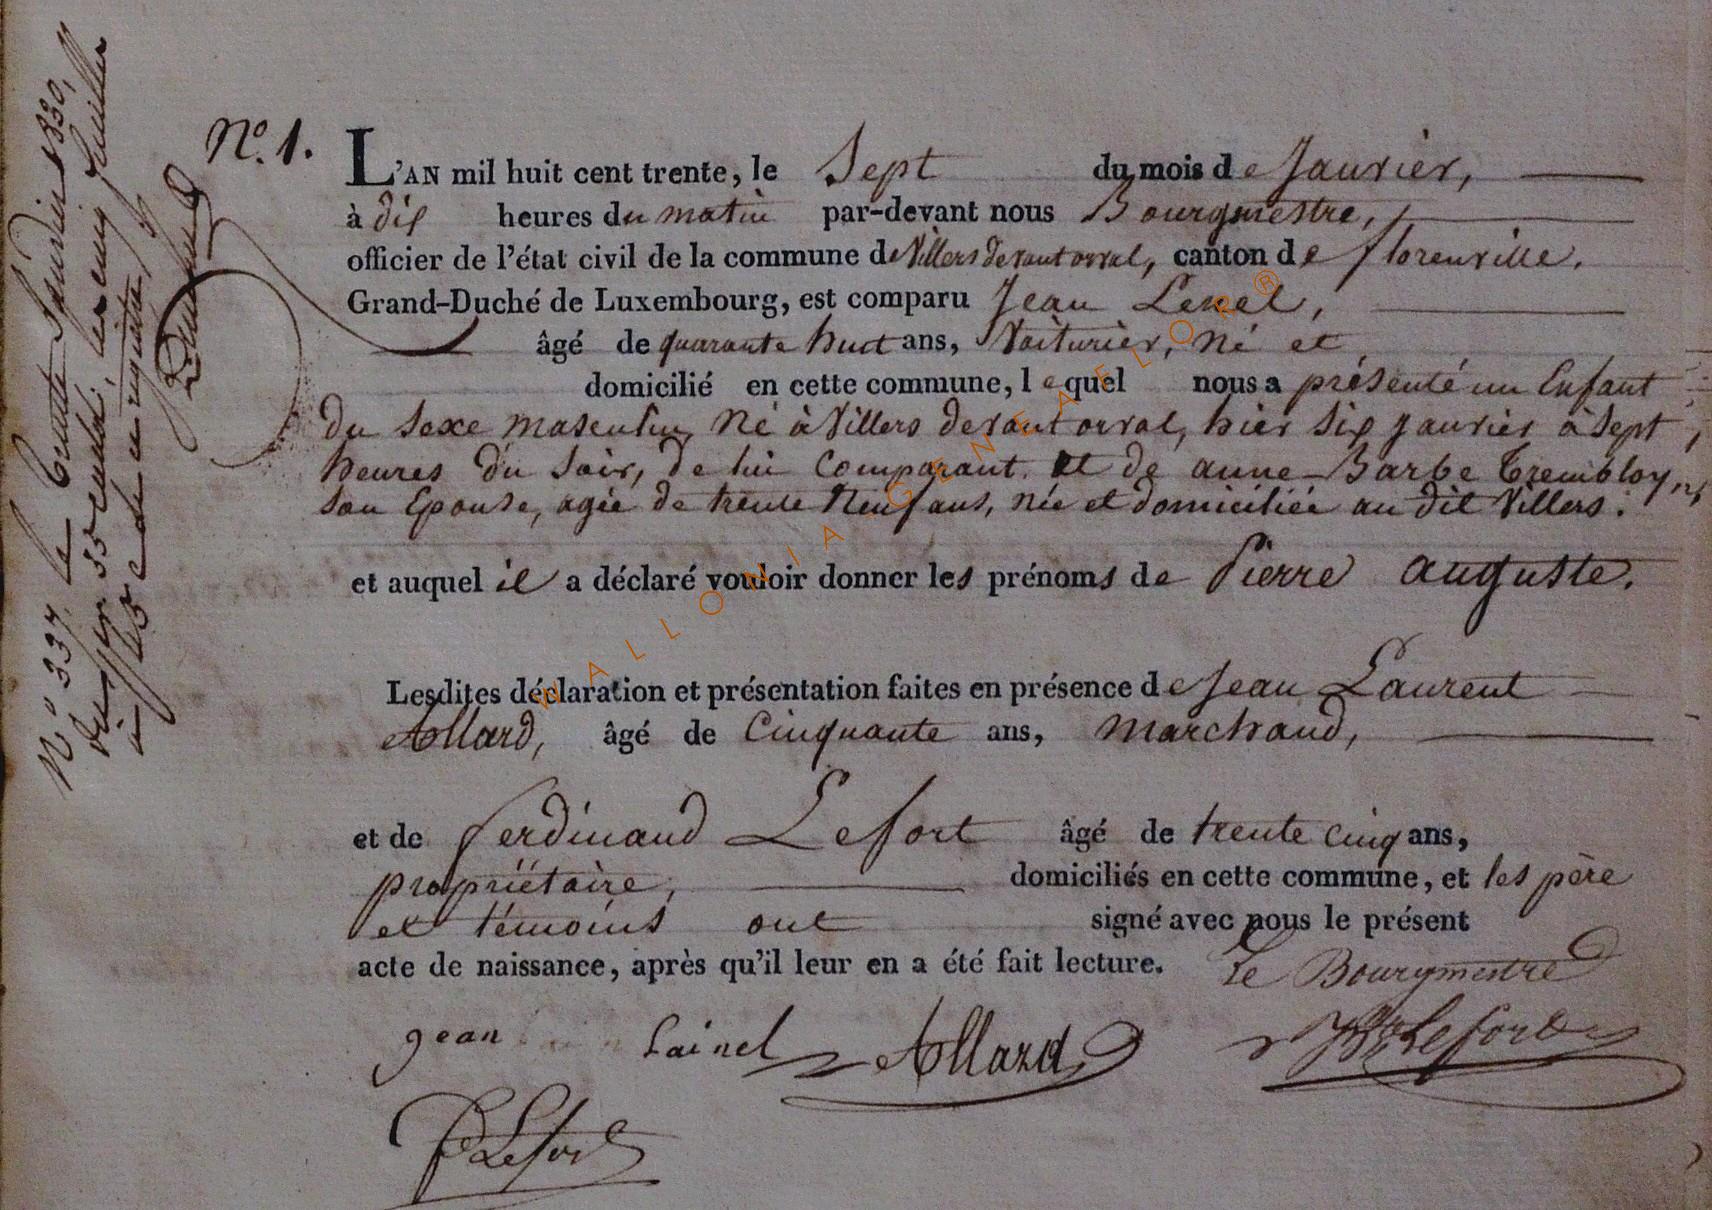 N.º 1.
L'AN mil huit cent trente, le Sept du mois de Janvier,
à dix heures du matin par-devant nous Bourgmestre,
officier de l'état civil de la commune de Villers devant orval, canton de florenville.
Grand-Duché de Luxembourg, est comparu Jean Lenel,
âgé de quarante huit ans, Voiturier, Né et
domicilié en cette commune, lequel nous a présenté un Enfant
du Sexe masculin, Né à Villers devant orval, hier Six Janvier à Sept
heures du Soir, de lui Comparant et de anne-Barbe Trembloy,
son Epouse, agée de trente Neuf ans, née et domiciliée au dit Villers.
et auquel il a déclaré vouloir donner les prénoms de Pierre auguste.
Lesdites déclaration et présentation faites en présence de Jean Laurent
Allard, âgé de Cinquante ans, Marchand,
et de ferdinand Lefort âgé de trente cinq ans,
propriétaire, domiciliés en cette commune, et les père
et témoins ont signé avec nous le présent
acte de naissance, après qu'il leur en a été fait lecture. Le Bourgmestre
jean Lainel Allard Lefort
F Lefort
Nº 337. le trente Janvier 1830,
WALLONIA GENEAELOR®